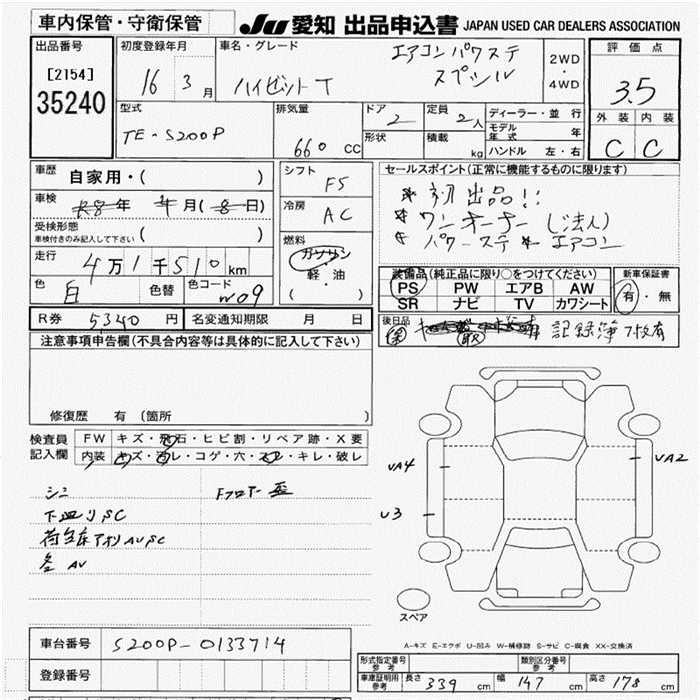 車内保管・守衛保管
JU 愛知 出品申込書 JAPAN USED CAR DEALERS ASSOCIATION
出品番号
[2154]
35240
初度登録年月
16 3 月
車名・グレード
ハイゼットT
エアコン パワステ
スペシャル
2WD
・
4WD
評価点
3.5
外装 内装
C C
型式
TE-S200P
排気量
660 cc
ドア 2
形状
定員 2 人
積載 kg
ディーラー・並行
モデル年式 年
ハンドル 左・右
車歴 自家用・( )
車検 年 月( 日)
受検形態
車検付きのみ記入して下さい ( )
走行 4万1千510 km
色 白 色替 色コード W09
シフト F5
冷房 AC
燃料
ガソリン
軽・油
( )
セールスポイント(正常に機能するものに限ります)
* 初出品!!
* ワンオーナー (法人)
* パワーステ * エアコン
装備品(純正品に限り○をつけてください)
PS PW エアB AW
SR ナビ TV カワシート
新車保証書
有・無
R券 5340 円 名変通知期限 月 日
後日品
記録簿 7枚有
注意事項申告欄(不具合内容等は具体的に記入して下さい)
修復歴 有 (箇所 )
検査員記入欄
FW キズ・飛石・ヒビ割・リペア跡・X要
内装 キズ・汚レ・コゲ・穴・スレ・キレ・破レ
シミ
下廻りSC
荷台床アオリAUSC
各AU
Fフロアー歪
UA4
U3
UA2
スペア
A-キズ E-エクボ U-凹み W-補修跡 S-サビ C-腐食 XX-交換済
車台番号 S200P-0133714
登録番号
形式指定番号 参考
類別区分番号 参考
車庫証明用 参考 長さ 339 cm 幅 147 cm 高さ 178 cm